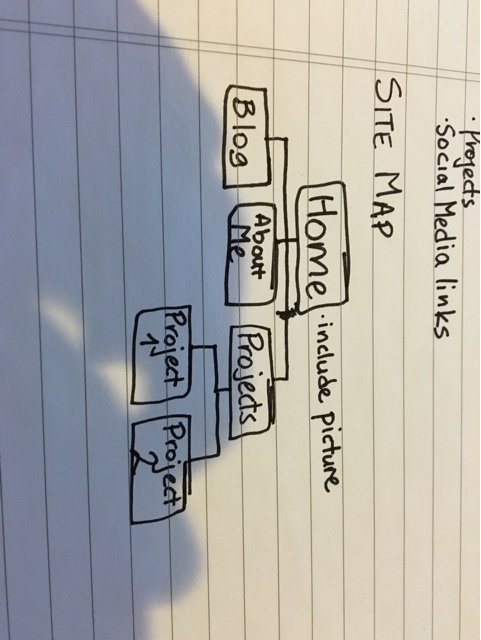 · Projects
· Social Media links
SITE MAP
Home · include picture
Blog
About
Me
Projects
Project
1
Project
2